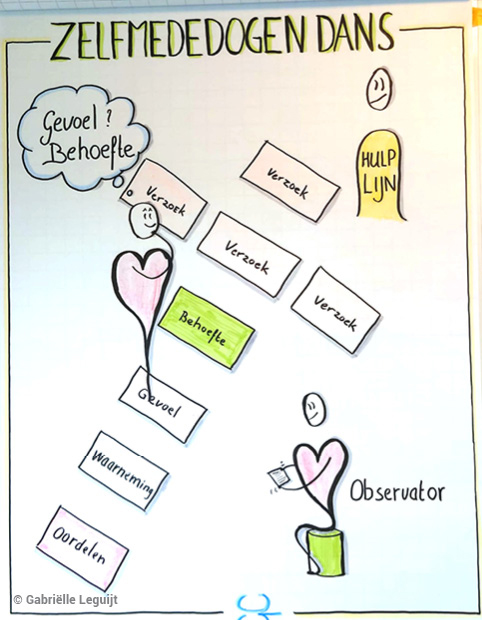 ZELFMEDEDOGEN DANS
Gevoel?
Behoefte
HULP
LIJN
Verzoek
Verzoek
Verzoek
Verzoek
Behoefte
Gevoel
Waarneming
Oordelen
Observator
© Gabriëlle Leguijt